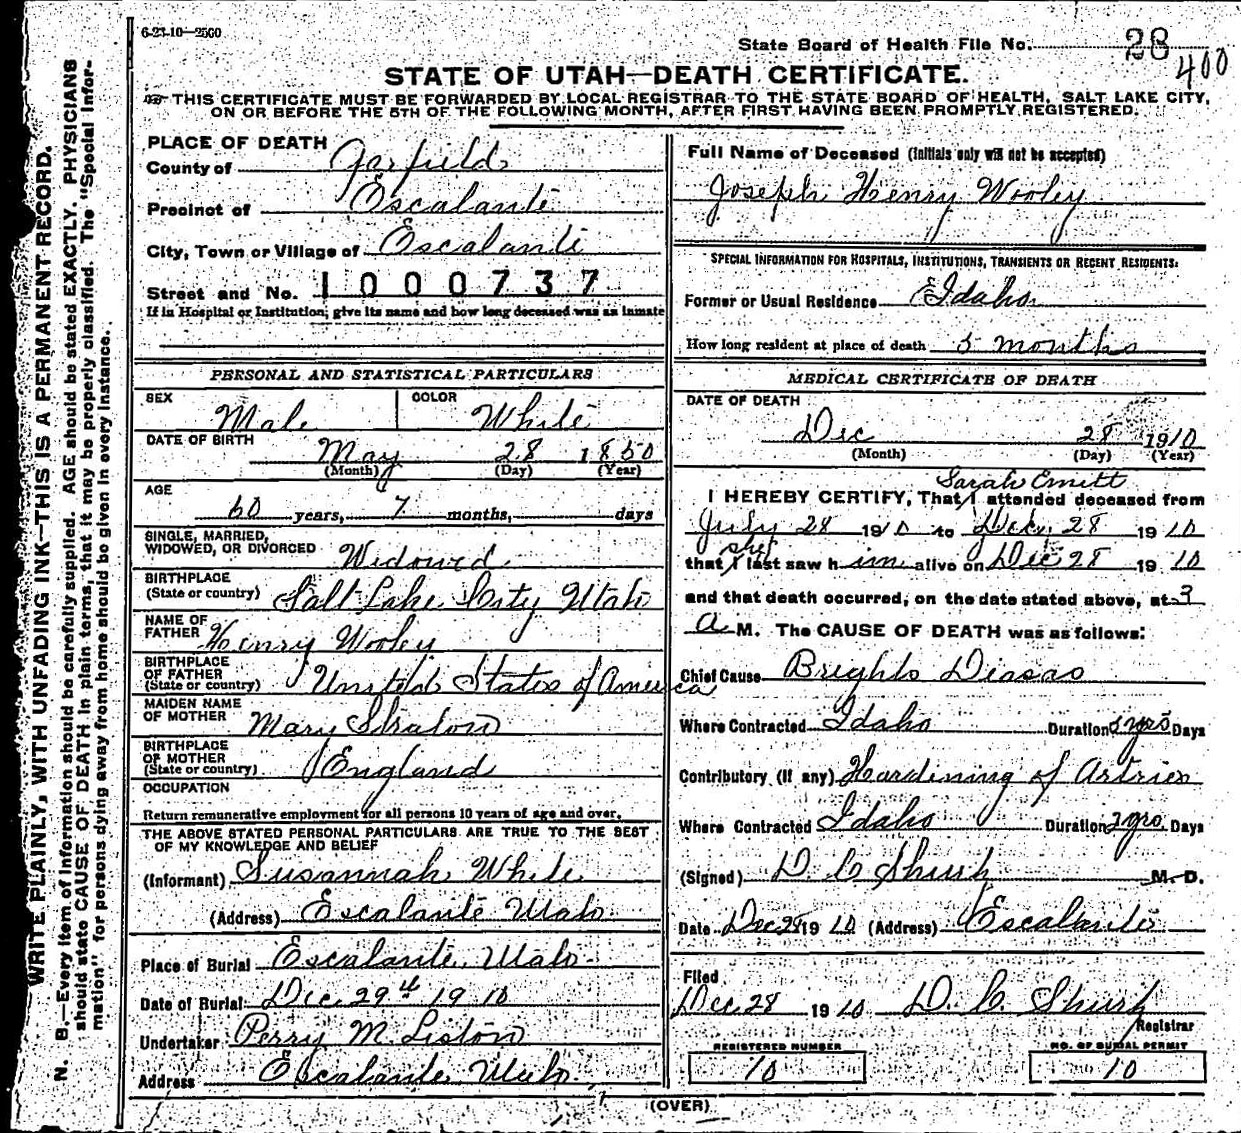 6-23-10—2500
State Board of Health File No. 28
400
STATE OF UTAH—DEATH CERTIFICATE.
THIS CERTIFICATE MUST BE FORWARDED BY LOCAL REGISTRAR TO THE STATE BOARD OF HEALTH, SALT LAKE CITY,
ON OR BEFORE THE 5TH OF THE FOLLOWING MONTH, AFTER FIRST HAVING BEEN PROMPTLY REGISTERED.
WRITE PLAINLY, WITH UNFADING INK—THIS IS A PERMANENT RECORD.
N. B.—Every item of information should be carefully supplied. AGE should be stated EXACTLY. PHYSICIANS
should state CAUSE OF DEATH in plain terms, that it may be properly classified. The "Special Infor-
mation" for persons dying away from home should be given in every instance.
PLACE OF DEATH
County of Garfield
Precinct of Escalante
City, Town or Village of Escalante
Street and No. 1000737
If in Hospital or Institution, give its name and how long deceased was an inmate
PERSONAL AND STATISTICAL PARTICULARS
SEX Male COLOR White
DATE OF BIRTH May 28 1850
(Month) (Day) (Year)
AGE
60 years, 7 months, days
SINGLE, MARRIED,
WIDOWED, OR DIVORCED Widowed
BIRTHPLACE
(State or country) Salt Lake City Utah
NAME OF
FATHER Henry Wooley
BIRTHPLACE
OF FATHER
(State or country) United States of America
MAIDEN NAME
OF MOTHER Mary Straton
BIRTHPLACE
OF MOTHER
(State or country) England
OCCUPATION
Return remunerative employment for all persons 10 years of age and over.
THE ABOVE STATED PERSONAL PARTICULARS ARE TRUE TO THE BEST
OF MY KNOWLEDGE AND BELIEF
(Informant) Susannah White
(Address) Escalante Utah
Place of Burial Escalante, Utah
Date of Burial Dec. 29th 1910
Undertaker Perry M. Liston
Address Escalante Utah
Full Name of Deceased (Initials only will not be accepted)
Joseph Henry Wooley
SPECIAL INFORMATION FOR HOSPITALS, INSTITUTIONS, TRANSIENTS OR RECENT RESIDENTS:
Former or Usual Residence Idaho
How long resident at place of death 5 months
MEDICAL CERTIFICATE OF DEATH
DATE OF DEATH
Dec 28 1910
(Month) (Day) (Year)
Sarah Emett
I HEREBY CERTIFY, That I attended deceased from
July 28 1910 to Dec. 28 1910
she
that I last saw him alive on Dec 28 1910
and that death occurred, on the date stated above, at 3
A M. The CAUSE OF DEATH was as follows:
Chief Cause Brights Diseas
Where Contracted Idaho Duration 3 yrs Days
Contributory (if any) Hardining of Artries
Where Contracted Idaho Duration 2 yrs. Days
(Signed) D. C. Shurtz M. D.
Date Dec 28 1910 (Address) Escalante
Filed
Dec. 28 1910 D. C. Shurtz
Registrar
REGISTERED NUMBER
10
NO. OF BURIAL PERMIT
10
(OVER)